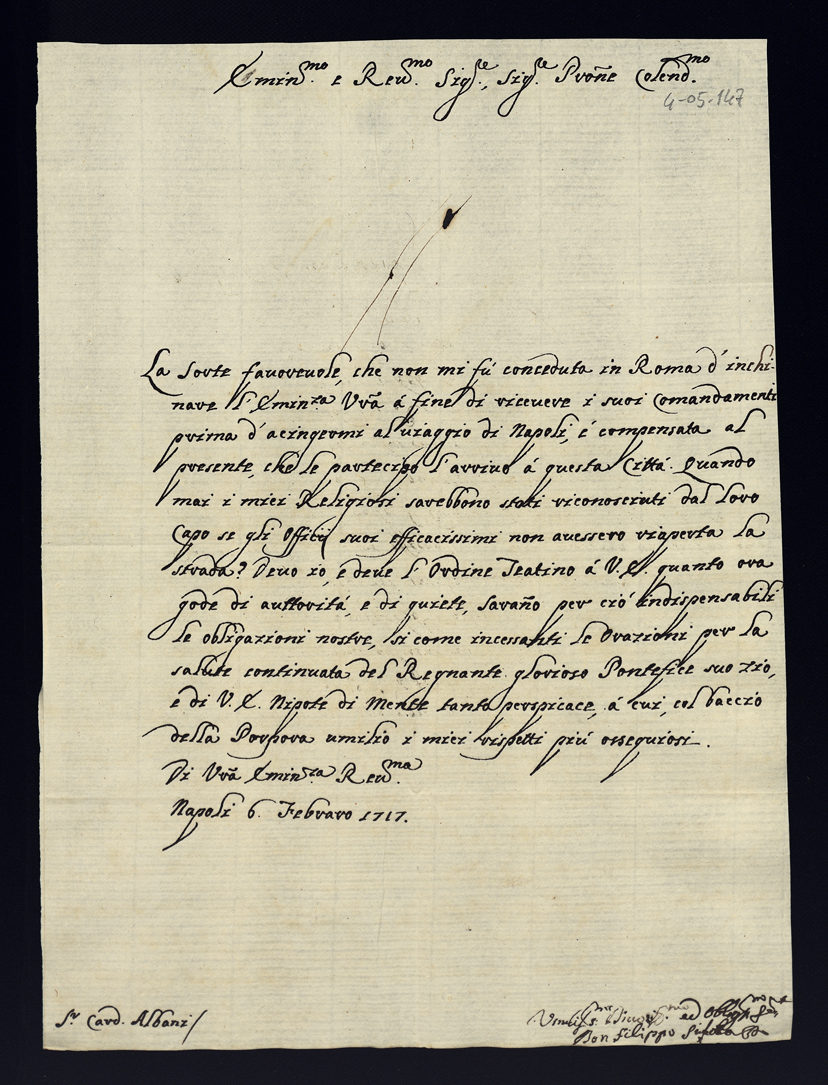 Emin.mo e Reu.mo Sig.re, Sig.re Prõne Colend.mo
4-05-147
La sorte fauoreuole, che non mi fú conceduta in Roma d'inchi-
nare l'Emin.za Vrã á fine di riceuere i suoi Comandamenti
prima d'acingermi al uiaggio di Napoli, é compensata al
presente, che le partecipo l'arriuo á questa Cittá. Quando
mai i miei Religiosi sarebbono stati riconosciuti dal loro
Capo se gli Officij suoi efficacissimi non auessero riaperta la
strada? Deuo io, e deue l'Ordine Teatino á V.E. quanto ora
gode di auttoritá, e di quiete, sarañо per ció indispensabili
le obligazioni nostre, si come incessanti le Orazioni per la
salute continuata del Regnante glorioso Pontefice suo zio,
e di V.E. Nipote di Mente tanto perspicace, á cui, col baccio
della Porpora umilio i miei rispetti piú ossequiosi.
Di Vrã Emin.za Reu.ma
Napoli 6. Febraro 1717.
S.r Card. Albani/
Don Filippo